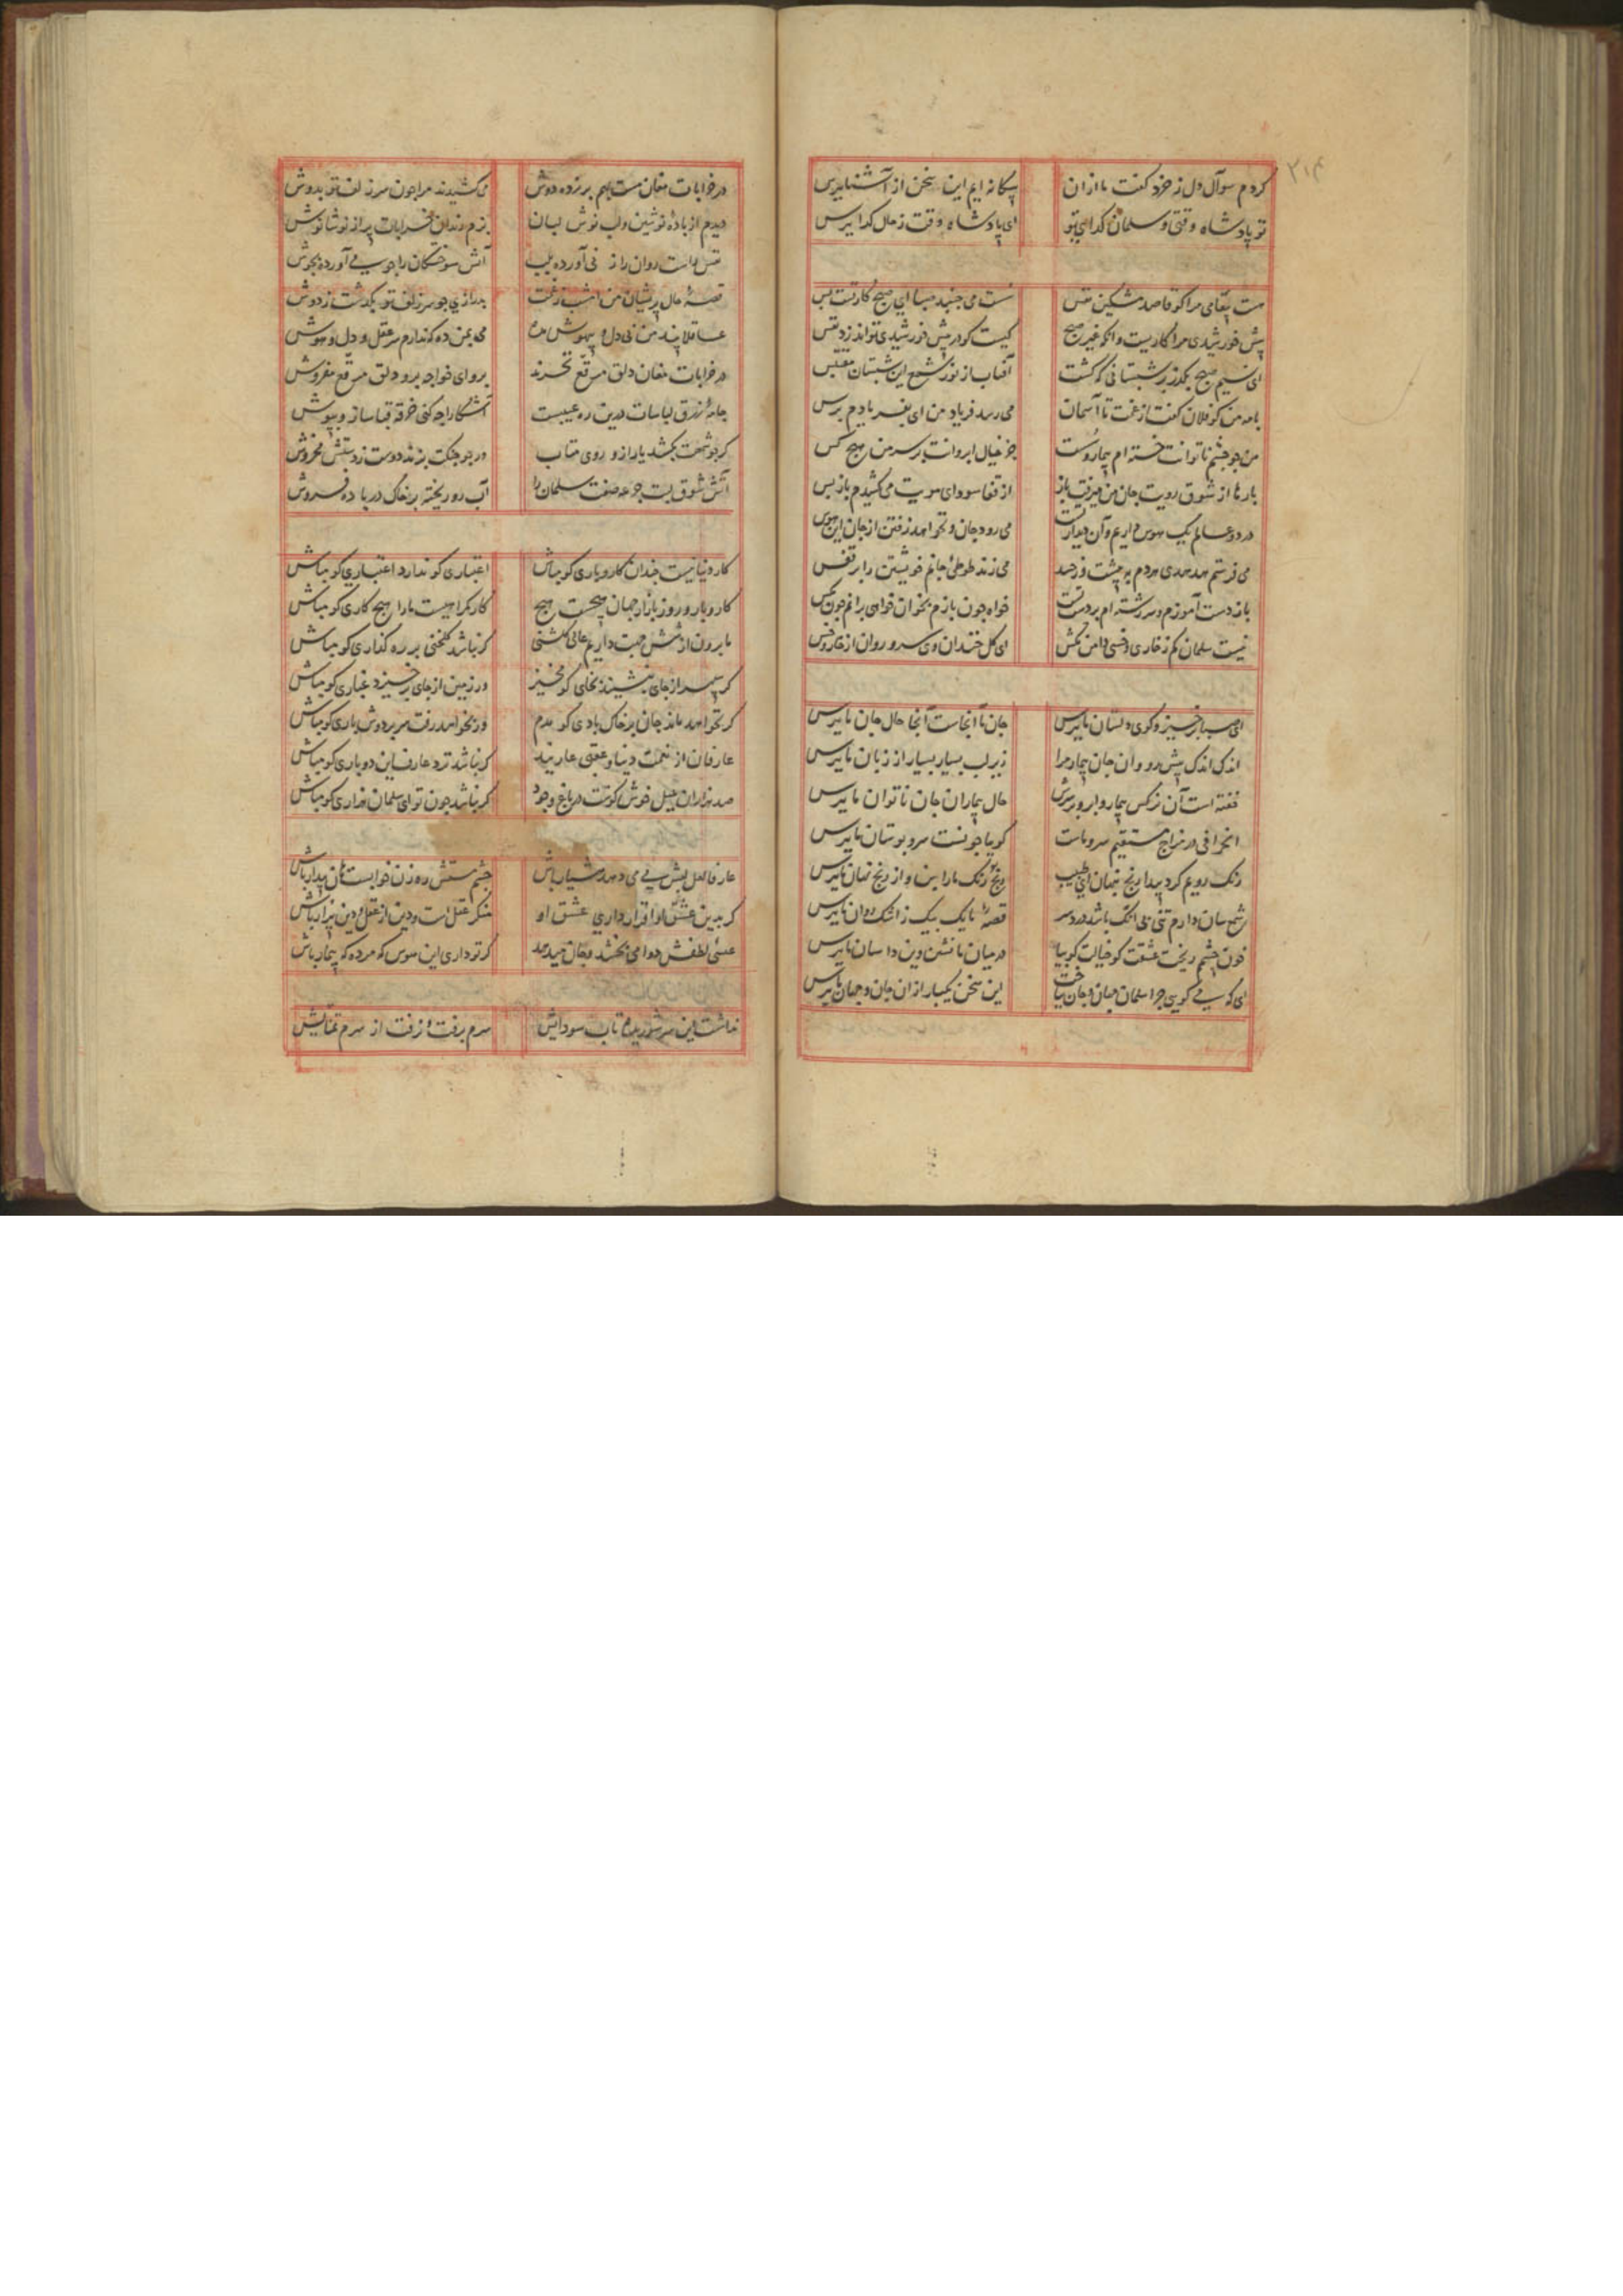 ۲۱۴
کردم سوآل دل ز خرد کفت ما ازان بیکانه ایم این سخن از آشنا بپرس
تو پادشاه وقتی و سلمان کدای تو ای پادشاه وقت ز حال کدا بپرس
هست پیغامی مرا کو قاصد مشکین نفس سست می جنبد صبا ای صبح کار تست بس
پیش خورشیدی مرا کاریست وانکه غیر صبح کیست کو در پیش خورشیدی تواند زد نفس
ای نسیم صبح بکذر بر شبستانی که کشت آفتاب از نور شمع این شبستان مقتبس
با مه من کو فلان کفت از غمت تا آسمان می رسد فریاد من ای مه بفریادم برس
من چو چشم ناتوانت خسته ام بیمار وست جز خیال ابروانت بر سر من هیچ کس
بارها از شوق رویت جان من میرفت باز از قفا سودای مویت می کشیدم باز پس
در دو عالم یک هوس داریم و آن دیدار تست می رود جان و نخواهد رفتن از جان این هوس
می فرستم هدهدی هر دم به پیشت ور چند می زند طوطی جانم خویشتن را بر قفس
باز دست آموزم و سررشته ام بر دست تست خواه چون بازم بخوان خواهی برانم چون مکس
نیست سلمان کم ز خاری و خسی دامن مکش ای کل خندان وی سرو روان از خار و خس
ای صبا برخیز و کوی دلستان ما بپرس جان ما آنجاست آنجا حال جان ما بپرس
اندکی اندکی پیش رو و ان جان بیمار مرا زیر لب بسیار بسیار از زبان ما بپرس
خفته است آن نرکس بیمار و ابرو بر سرش حال بیماران جان ناتوان ما بپرس
انحرافی در مزاج مستقیم سرو ماست کویا چونست سرو بوستان ما بپرس
رنک رویم کرد پیدا رنج پنهان ای طبیب رنک ما را بین و از رنج نهان ما بپرس
شمع سان دارم تنی بی اشک باشد در دسر قصه ما یک بیک ز اشک روان ما بپرس
خون چشمم ریخت عشقت کو خیالت کو بیا در میان ما نشین وین داستان ما بپرس
ای که می کویی چرا سلمان جهان و جان بباخت این سخن یکبار ازان جان و جهان ما بپرس
در خرابات مغان مست بهم برزده دوش می کشیدند مرا چون سر زلف تو بدوش
دیدم از باده نوشین و لب نوش لبان بزم رندان خرابات پر از نوشانوش
نفس راست روان را ز نی آورده بلب آتش سوختکان را چو می آورده بجوش
قصه حال پریشان من امشب ز غمت بدرازی چو سر زلف تو بکذشت ز دوش
عاقلا پند من بی دل و بیهوش مده می بمن ده که ندارم سر عقل و دل و هوش
در خرابات مغان دلق مرقع نخرند برو ای خواجه برو دلق مرقع مفروش
جامه زرق لباسات درین ره عیبست آشکارا چه کنی خرقه قبا ساز و بپوش
کر چو شمعت بکشد یار ازو روی متاب ور چو چنکت بزند دوست ز دستش مخروش
آتش شوق لبت جرعه صفت سلمان را آب رو ریخته بر خاک در باده فروش
کار دنیا نیست چندان کار و باری کو مباش اعتباری کو ندارد اعتباری کو مباش
کار و بار و روز بازار جهان هیچست هیچ کار کر اهیست ما را هیچ کاری کو مباش
ما برون از شش جهت داریم عالی کلشنی کر نباشد کلخنی بر ره کذاری کو مباش
کر سپهر از جای بنشیند بخای کو مخیز ور زمین از جای برخیزد غباری کو مباش
کر نخواهد ماند جان بر خاک بادی کو مدم ور نخواهد رفت سر بر دوش باری کو مباش
عارفان از نعمت دنیا و عقبی عاریند کر نباشد نزد عارف این دو باری کو مباش
صد هزاران بلبل خوش کوست در باغ وجود کر نباشد چون تو ای سلمان هزاری کو مباش
عارفا لعل لبش می می دهد هشیار باش چشم مستش ره زن خوابست هان بیدار باش
کر بدین عشاق او اقرار داری عشق او منکر عقل است و دین از عقل و دین بیزار باش
عیسی لطفش دوا می بخشد و جان میدهد کر تو داری این هوس کو مرده که بیمار باش
نداشت این سر شوریده تاب سودایش سرم برفت و نرفت از سرم تمنایش